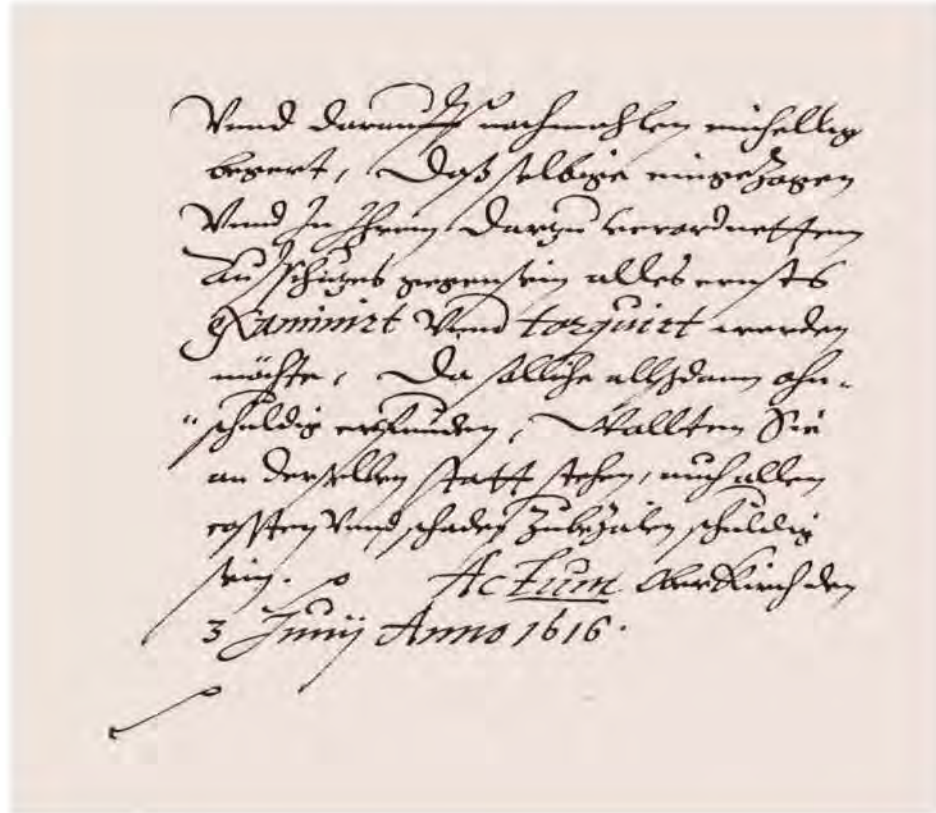 Vnnd darauff nachmahlen einhellig
begert, Daß selbige eingezogen
Vnnd In Ihrem Darzu verordnettem
Ausschuzes gegensein alles ernsts
Examinirt Vnnd torquirt werden
möchte, Da solliche allßdann ohn-
"schuldig erfunden, Wollten Sie
an derselben statt stehen, auch allen
costen Vnnd schaden Zubezalen schuldig
sein. Actum OberKirch den
3 Junij Anno 1616.